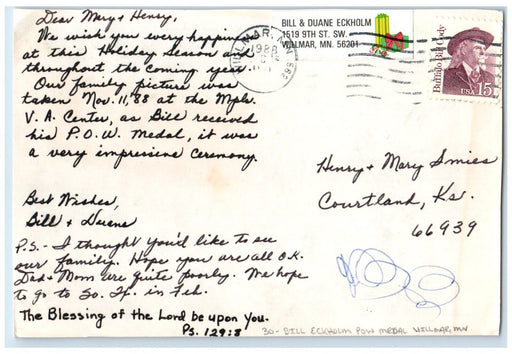 Dear Mary + Henry,
We wish you every happiness
at this Holiday Season and
throughout the coming year.
Our family picture was
taken Nov. 11, 88 at the Mpls.
V. A. Center, as Bill received
his P.O.W. Medal, it was
a very impressive ceremony.
Best Wishes,
Bill +
P.S. - I thought you'd like to see
our family. Hope you are all O.K.
Dad + Mom are quite poorly. We hope
to go to So. in Feb.
The Blessing of the Lord be upon you.
Ps. 129:8
WILLMAR, MN
1988
BILL & DUANE ECKHOLM
1519 9TH ST. SW.
WILLMAR, MN. 56201
Buffalo Bill Cody
USA 15
Henry + Mary Smies
Courtland, Ks.
66939
30 - BILL ECKHOLM POW MEDAL WILLMAR, MN